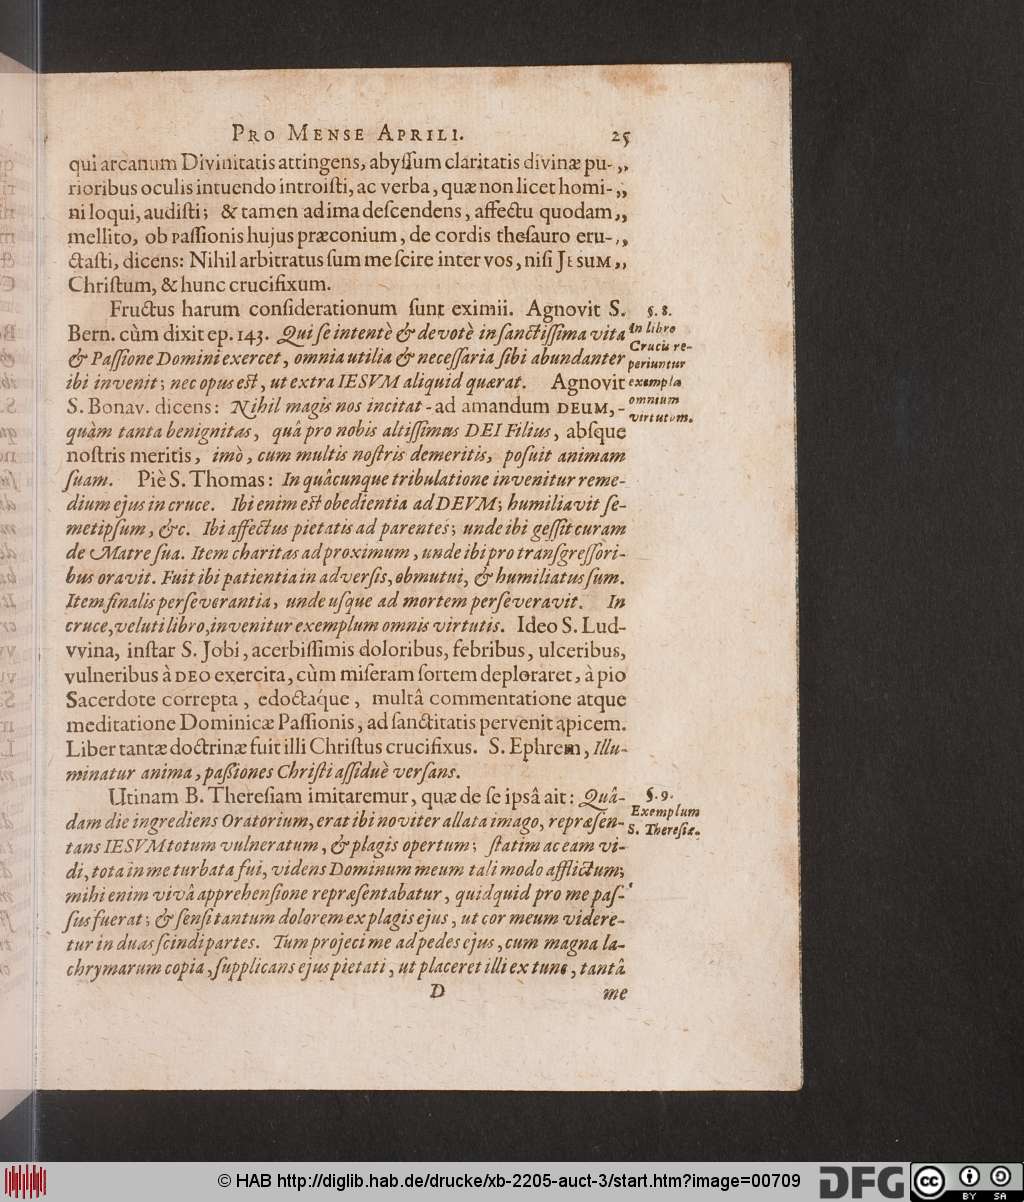 PRO MENSE APRILI. 25
qui arcanum Divinitatis attingens, abyſſum claritatis divinæ pu-„
rioribus oculis intuendo introiſti, ac verba, quæ non licet homi-„
ni loqui, audiſti; & tamen ad ima deſcendens, affectu quodam„
mellito, ob paſſionis hujus præconium, de cordis theſauro eru-„
ctaſti, dicens: Nihil arbitratus ſum me ſcire inter vos, niſi JESUM„
Chriſtum, & hunc crucifixum.
Fructus harum conſiderationum ſunt eximii. Agnovit S.
§. 8.
Bern. cùm dixit ep. 143. Qui ſe intentè & devotè in ſanctiſſima vita
In libro
& Paſſione Domini exercet, omnia utilia & neceſſaria ſibi abundanter
Crucis re-
periuntur
ibi invenit; nec opus eſt, ut extra IESVM aliquid quærat. Agnovit
exempla
S. Bonav. dicens: Nihil magis nos incitat - ad amandum DEUM, -
omnium
virtutum.
quàm tanta benignitas, quâ pro nobis altiſſimus DEI Filius, abſque
noſtris meritis, imò, cum multis noſtris demeritis, poſuit animam
ſuam. Piè S. Thomas: In quâcunque tribulatione invenitur reme-
dium ejus in cruce. Ibi enim eſt obedientia ad DEVM; humiliavit ſe-
metipſum, &c. Ibi affectus pietatis ad parentes; unde ibi geſſit curam
de Matre ſua. Item charitas ad proximum, unde ibi pro tranſgreſſori-
bus oravit. Fuit ibi patientia in adverſis, obmutui, & humiliatus ſum.
Item finalis perſeverantia, unde uſque ad mortem perſeveravit. In
cruce, veluti libro, invenitur exemplum omnis virtutis. Ideo S. Lud-
vvina, inſtar S. Jobi, acerbiſſimis doloribus, febribus, ulceribus,
vulneribus à DEO exercita, cùm miſeram ſortem deploraret, à pio
Sacerdote correpta, edoctaque, multâ commentatione atque
meditatione Dominicæ Paſſionis, ad ſanctitatis pervenit apicem.
Liber tantæ doctrinæ fuit illi Chriſtus crucifixus. S. Ephrem, Illu-
minatur anima, paſſiones Chriſti aſſiduè verſans.
Utinam B. Thereſiam imitaremur, quæ de ſe ipsâ ait: Quâ-
§. 9.
dam die ingrediens Oratorium, erat ibi noviter allata imago, repræſen-
Exemplum
S. Thereſiæ.
tans IESVM totum vulneratum, & plagis opertum; ſtatim ac eam vi-
di, tota in me turbata fui, videns Dominum meum tali modo afflictum;
mihi enim vivâ apprehenſione repræſentabatur, quidquid pro me paſ-
ſus fuerat; & ſenſi tantum dolorem ex plagis ejus, ut cor meum videre-
tur in duas ſcindi partes. Tum projeci me ad pedes ejus, cum magna la-
chrymarum copia, ſupplicans ejus pietati, ut placeret illi ex tunc, tantâ
D me
© HAB http://diglib.hab.de/drucke/xb-2205-auct-3/start.htm?image=00709
DFG
cc BY SA